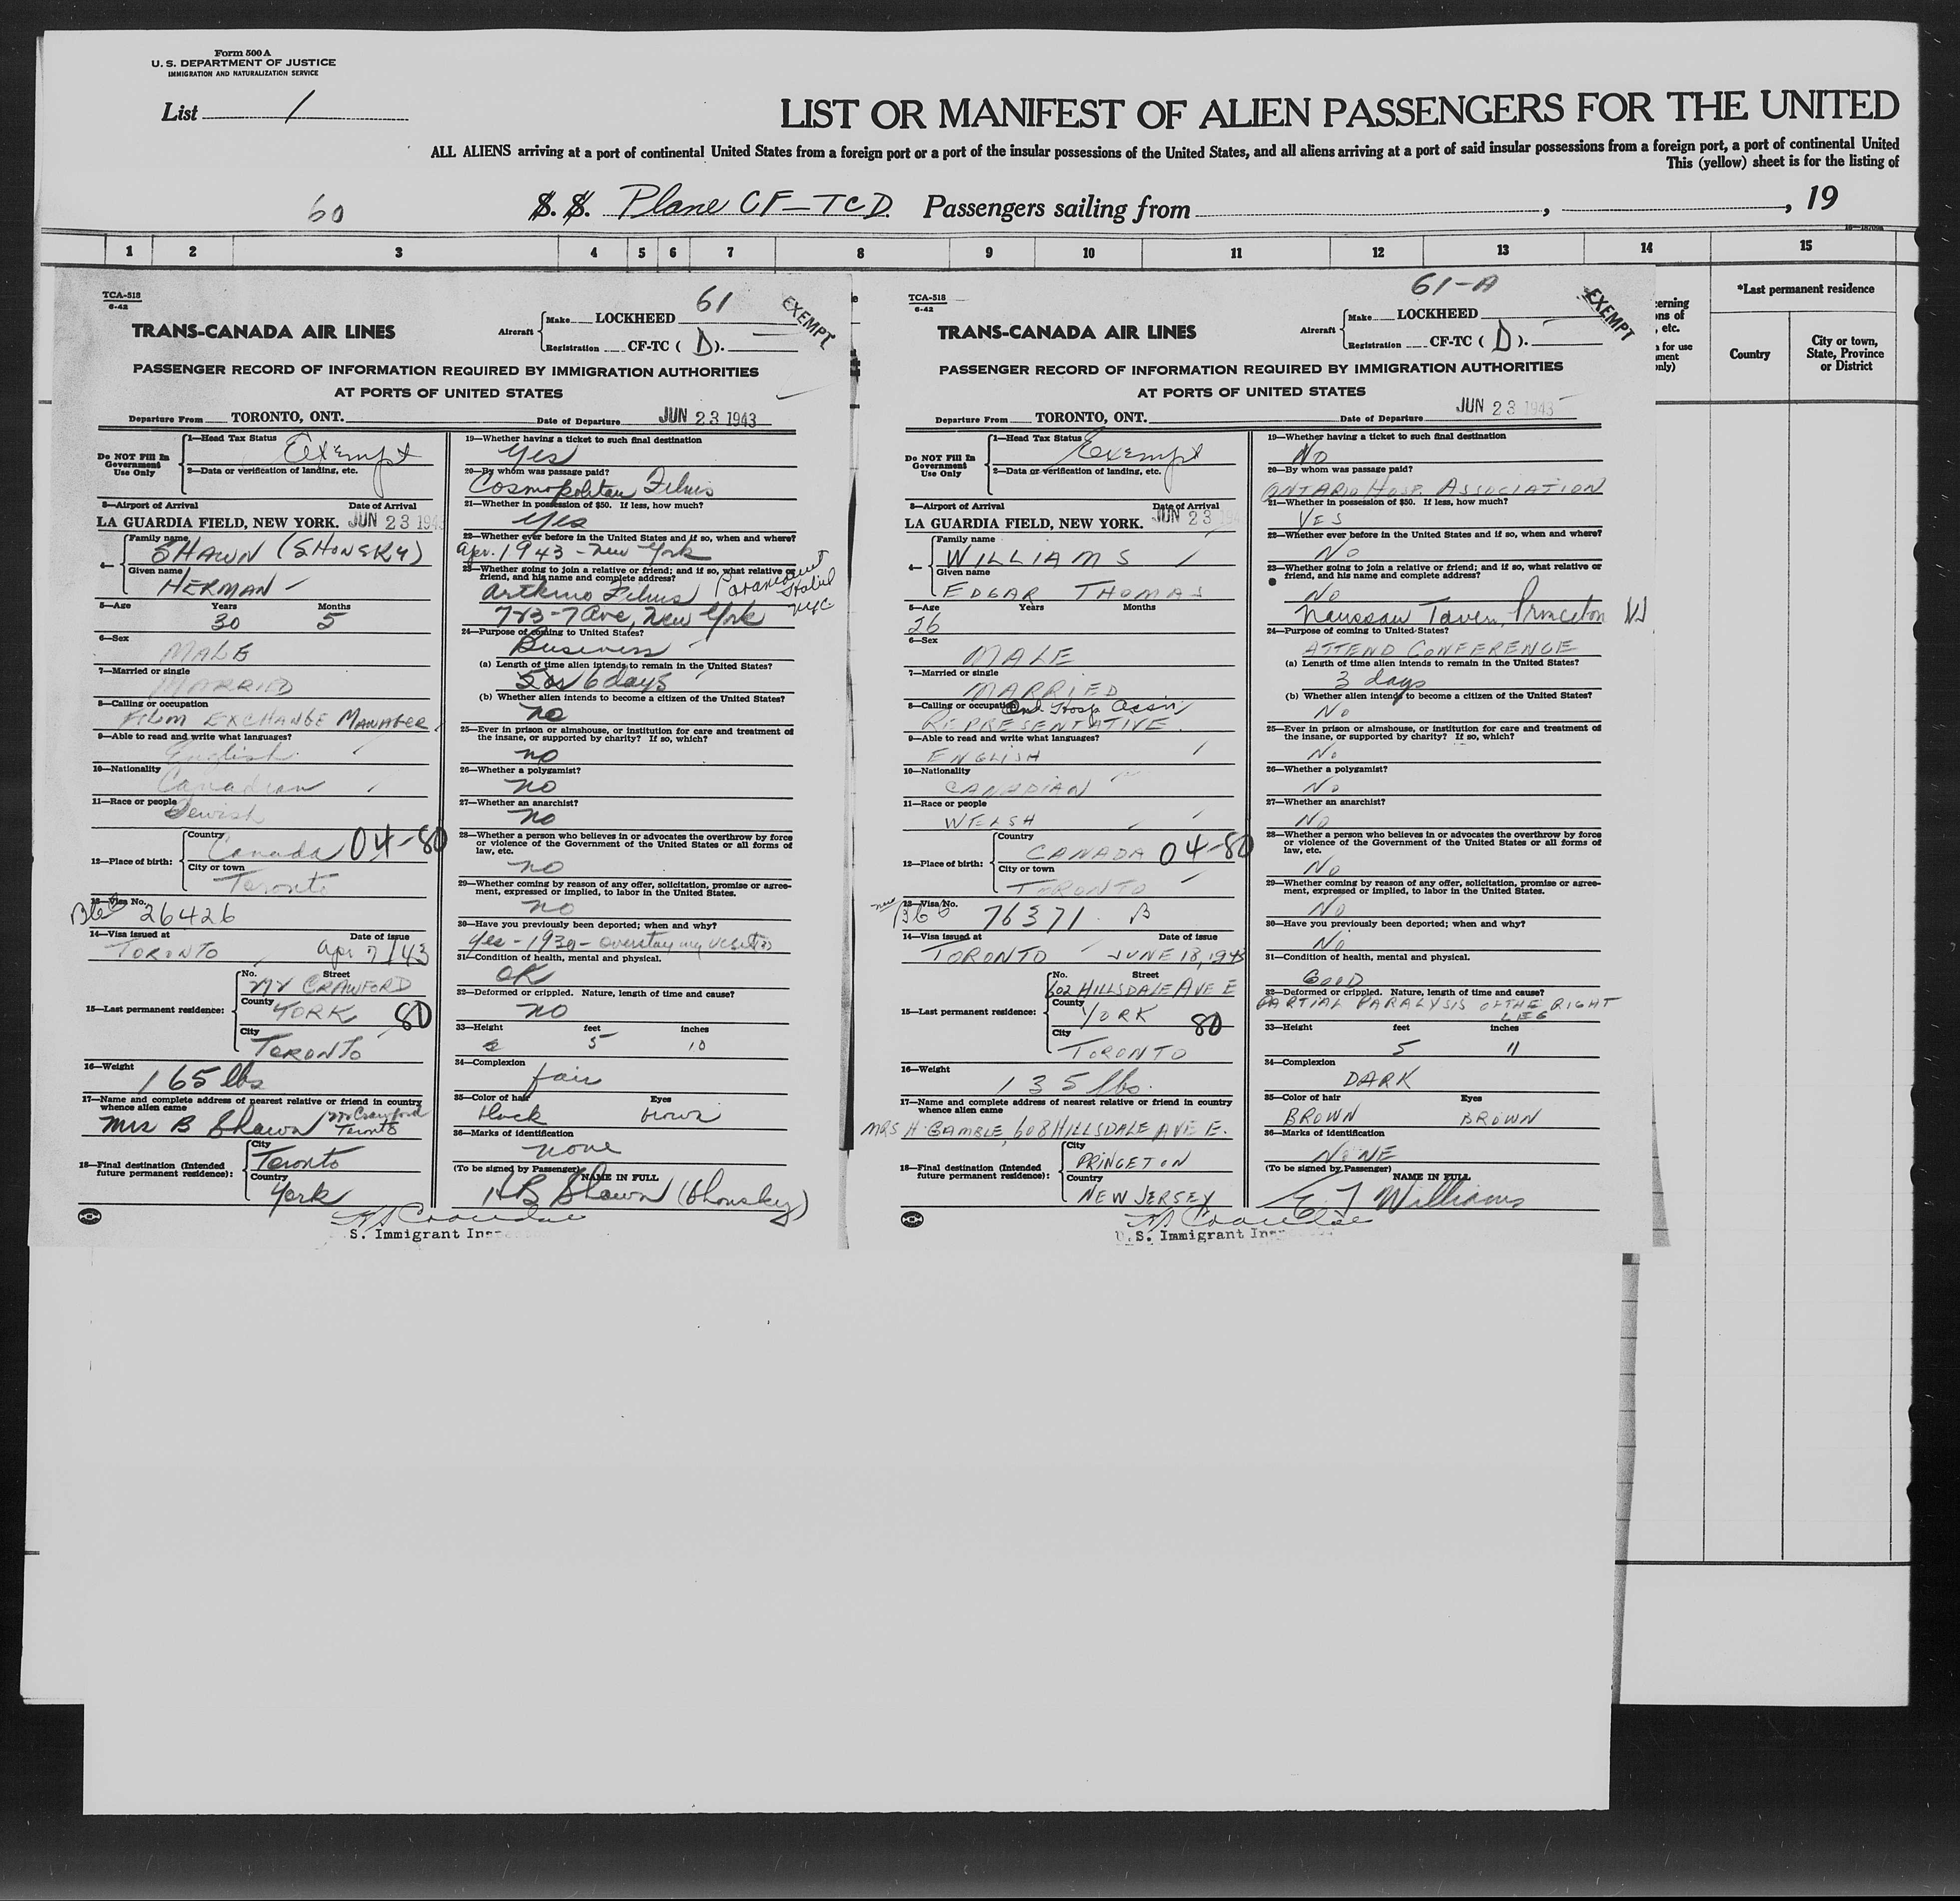 Form 500 A
U. S. DEPARTMENT OF JUSTICE
IMMIGRATION AND NATURALIZATION SERVICE
List 1
LIST OR MANIFEST OF ALIEN PASSENGERS FOR THE UNITED
ALL ALIENS arriving at a port of continental United States from a foreign port or a port of the insular possessions of the United States, and all aliens arriving at a port of said insular possessions from a foreign port, a port of continental United
This (yellow) sheet is for the listing of
60 S. S. Plane CF-TCD. Passengers sailing from , , 19
1 2 3 4 5 6 7 8 9 10 11 12 13 14 15
*Last permanent residence
Country
City or town,
State, Province
or District
TCA-518
6-42
61
EXEMPT
TRANS-CANADA AIR LINES
Aircraft
Make LOCKHEED
Registration CF-TC ( D ).
PASSENGER RECORD OF INFORMATION REQUIRED BY IMMIGRATION AUTHORITIES
AT PORTS OF UNITED STATES
Departure From TORONTO, ONT. Date of Departure JUN 23 1943
Do NOT Fill In
Government
Use Only
1—Head Tax Status Exempt
2—Data or verification of landing, etc.
3—Airport of Arrival Date of Arrival
LA GUARDIA FIELD, NEW YORK. JUN 23 194
4—
Family name
SHAWN (SHONSKY)
Given name
HERMAN
5—Age Years Months
30 5
6—Sex
MALE
7—Married or single
MARRIED
8—Calling or occupation
FILM EXCHANGE MANAGER
9—Able to read and write what languages?
English
10—Nationality
Canadian
11—Race or people
Jewish
12—Place of birth:
Country
Canada 04-80
City or town
Toronto
13—Visa No.
26426
14—Visa issued at Date of issue
TORONTO Apr 7/43
15—Last permanent residence:
No. Street
CRAWFORD
County
YORK 80
City
TORONTO
16—Weight
165 lbs
17—Name and complete address of nearest relative or friend in country
whence alien came
Mrs B Shawn Crawford
Toronto
18—Final destination (Intended
future permanent residence):
City
Toronto
Country
York
19—Whether having a ticket to such final destination
Yes
20—By whom was passage paid?
Cosmopolitan Films
21—Whether in possession of $50. If less, how much?
Yes
22—Whether ever before in the United States and if so, when and where?
Apr. 1943 - New York
23—Whether going to join a relative or friend; and if so, what relative or
friend, and his name and complete address?
Artkino Films Paramount
Hotel
NYC
723-7 Ave, New York
24—Purpose of coming to United States?
Business
(a) Length of time alien intends to remain in the United States?
5 or 6 days
(b) Whether alien intends to become a citizen of the United States?
no
25—Ever in prison or almshouse, or institution for care and treatment of
the insane, or supported by charity? If so, which?
no
26—Whether a polygamist?
no
27—Whether an anarchist?
no
28—Whether a person who believes in or advocates the overthrow by force
or violence of the Government of the United States or all forms of
law, etc.
no
29—Whether coming by reason of any offer, solicitation, promise or agree-
ment, expressed or implied, to labor in the United States.
no
30—Have you previously been deported; when and why?
Yes - 1930 - overstay my visit
31—Condition of health, mental and physical.
OK
32—Deformed or crippled. Nature, length of time and cause?
no
33—Height feet inches
5 10
34—Complexion
fair
35—Color of hair Eyes
black brown
36—Marks of identification
none
(To be signed by Passenger) NAME IN FULL
HB Shawn (Shonsky)
S. Immigrant
TCA-518
6-42
61-A
EXEMPT
TRANS-CANADA AIR LINES
Aircraft
Make LOCKHEED
Registration CF-TC ( D ).
PASSENGER RECORD OF INFORMATION REQUIRED BY IMMIGRATION AUTHORITIES
AT PORTS OF UNITED STATES
Departure From TORONTO, ONT. Date of Departure JUN 23 1943
Do NOT Fill In
Government
Use Only
1—Head Tax Status Exempt
2—Data or verification of landing, etc.
3—Airport of Arrival Date of Arrival
LA GUARDIA FIELD, NEW YORK. JUN 23
4—
Family name
WILLIAMS
Given name
EDGAR THOMAS
5—Age Years Months
26
6—Sex
MALE
7—Married or single
MARRIED
8—Calling or occupation Ont. Hosp Assn
REPRESENTATIVE
9—Able to read and write what languages?
ENGLISH
10—Nationality
CANADIAN
11—Race or people
WELSH
12—Place of birth:
Country
CANADA 04-80
City or town
TORONTO
13—Visa No.
76371 B
14—Visa issued at Date of issue
TORONTO JUNE 18, 1943
15—Last permanent residence:
No. Street
602 HILLSDALE AVE E
County
YORK 80
City
TORONTO
16—Weight
135 lbs.
17—Name and complete address of nearest relative or friend in country
whence alien came
MRS H. GAMBLE, 608 HILLSDALE AVE E.
18—Final destination (Intended
future permanent residence):
City
PRINCETON
Country
NEW JERSEY
19—Whether having a ticket to such final destination
No
20—By whom was passage paid?
ONTARIO HOSP. ASSOCIATION
21—Whether in possession of $50. If less, how much?
YES
22—Whether ever before in the United States and if so, when and where?
No
23—Whether going to join a relative or friend; and if so, what relative or
friend, and his name and complete address?
No
Naussau Tavern, Princeton NJ
24—Purpose of coming to United States?
ATTEND CONFERENCE
(a) Length of time alien intends to remain in the United States?
3 days
(b) Whether alien intends to become a citizen of the United States?
No
25—Ever in prison or almshouse, or institution for care and treatment of
the insane, or supported by charity? If so, which?
No
26—Whether a polygamist?
No
27—Whether an anarchist?
No
28—Whether a person who believes in or advocates the overthrow by force
or violence of the Government of the United States or all forms of
law, etc.
No
29—Whether coming by reason of any offer, solicitation, promise or agree-
ment, expressed or implied, to labor in the United States.
No
30—Have you previously been deported; when and why?
No
31—Condition of health, mental and physical.
GOOD
32—Deformed or crippled. Nature, length of time and cause?
PARTIAL PARALYSIS OF THE RIGHT
LEG
33—Height feet inches
5 11
34—Complexion
DARK
35—Color of hair Eyes
BROWN BROWN
36—Marks of identification
NONE
(To be signed by Passenger) NAME IN FULL
E. T Williams
U.S. Immigrant